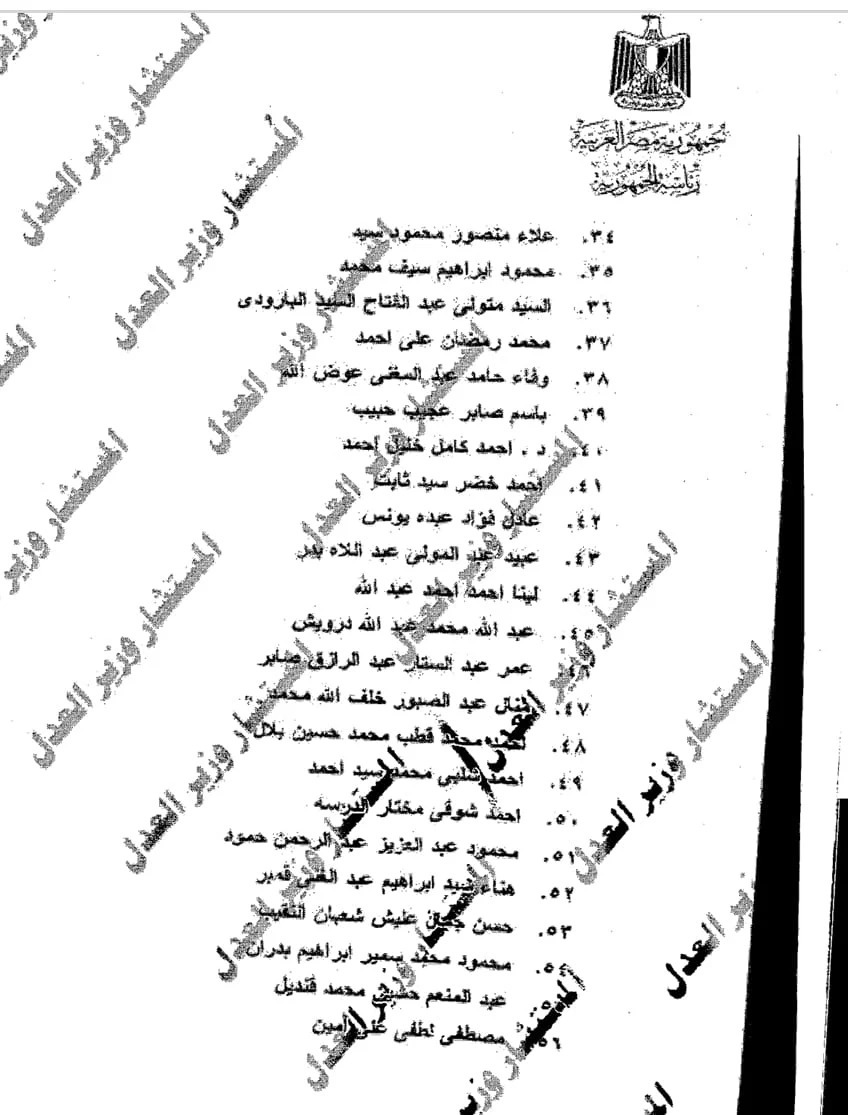 جمهورية مصر العربية
رئاسة الجمهورية
٣٤. علاء منصور محمود سيد
٣٥. محمود ابراهيم سيف محمد
٣٦. السيد متولى عبد الفتاح السيد البارودى
٣٧. محمد رمضان على احمد
٣٨. وفاء حامد عبد السغنى عوض الله
٣٩. باسم صابر عجيب حبيب
٤٠. د . احمد كامل خليل احمد
٤١. احمد خضر سيد ثابت
٤٢. عادل فؤاد عبده يونس
٤٣. عبيد عبد المولى عبد اللاه بدر
٤٤. لينا احمد احمد عبد الله
٤٥. عبد الله محمد عبد الله درويش
٤٦. عمر عبد الستار عبد الرازق صابر
٤٧. منال عبد الصبور خلف الله محمد
٤٨. محمد قطب محمد حسين بلال
٤٩. احمد شلبى محمد سيد احمد
٥٠. احمد شوقى مختار
٥١. محمود عبد العزيز عبد الرحمن حمود
٥٢. هناء سيد ابراهيم عبد الغنى قمبر
٥٣. حسن عليش شعبان النقيب
٥٤. محمود محمد سمير ابراهيم بدران
٥٥. عبد المنعم محمد قنديل
٥٦. مصطفى لطفى على امين
المستشار وزير العدل
المستشار وزير العدل
المستشار وزير العدل
المستشار وزير العدل
المستشار وزير العدل
المستشار وزير العدل
المستشار وزير العدل